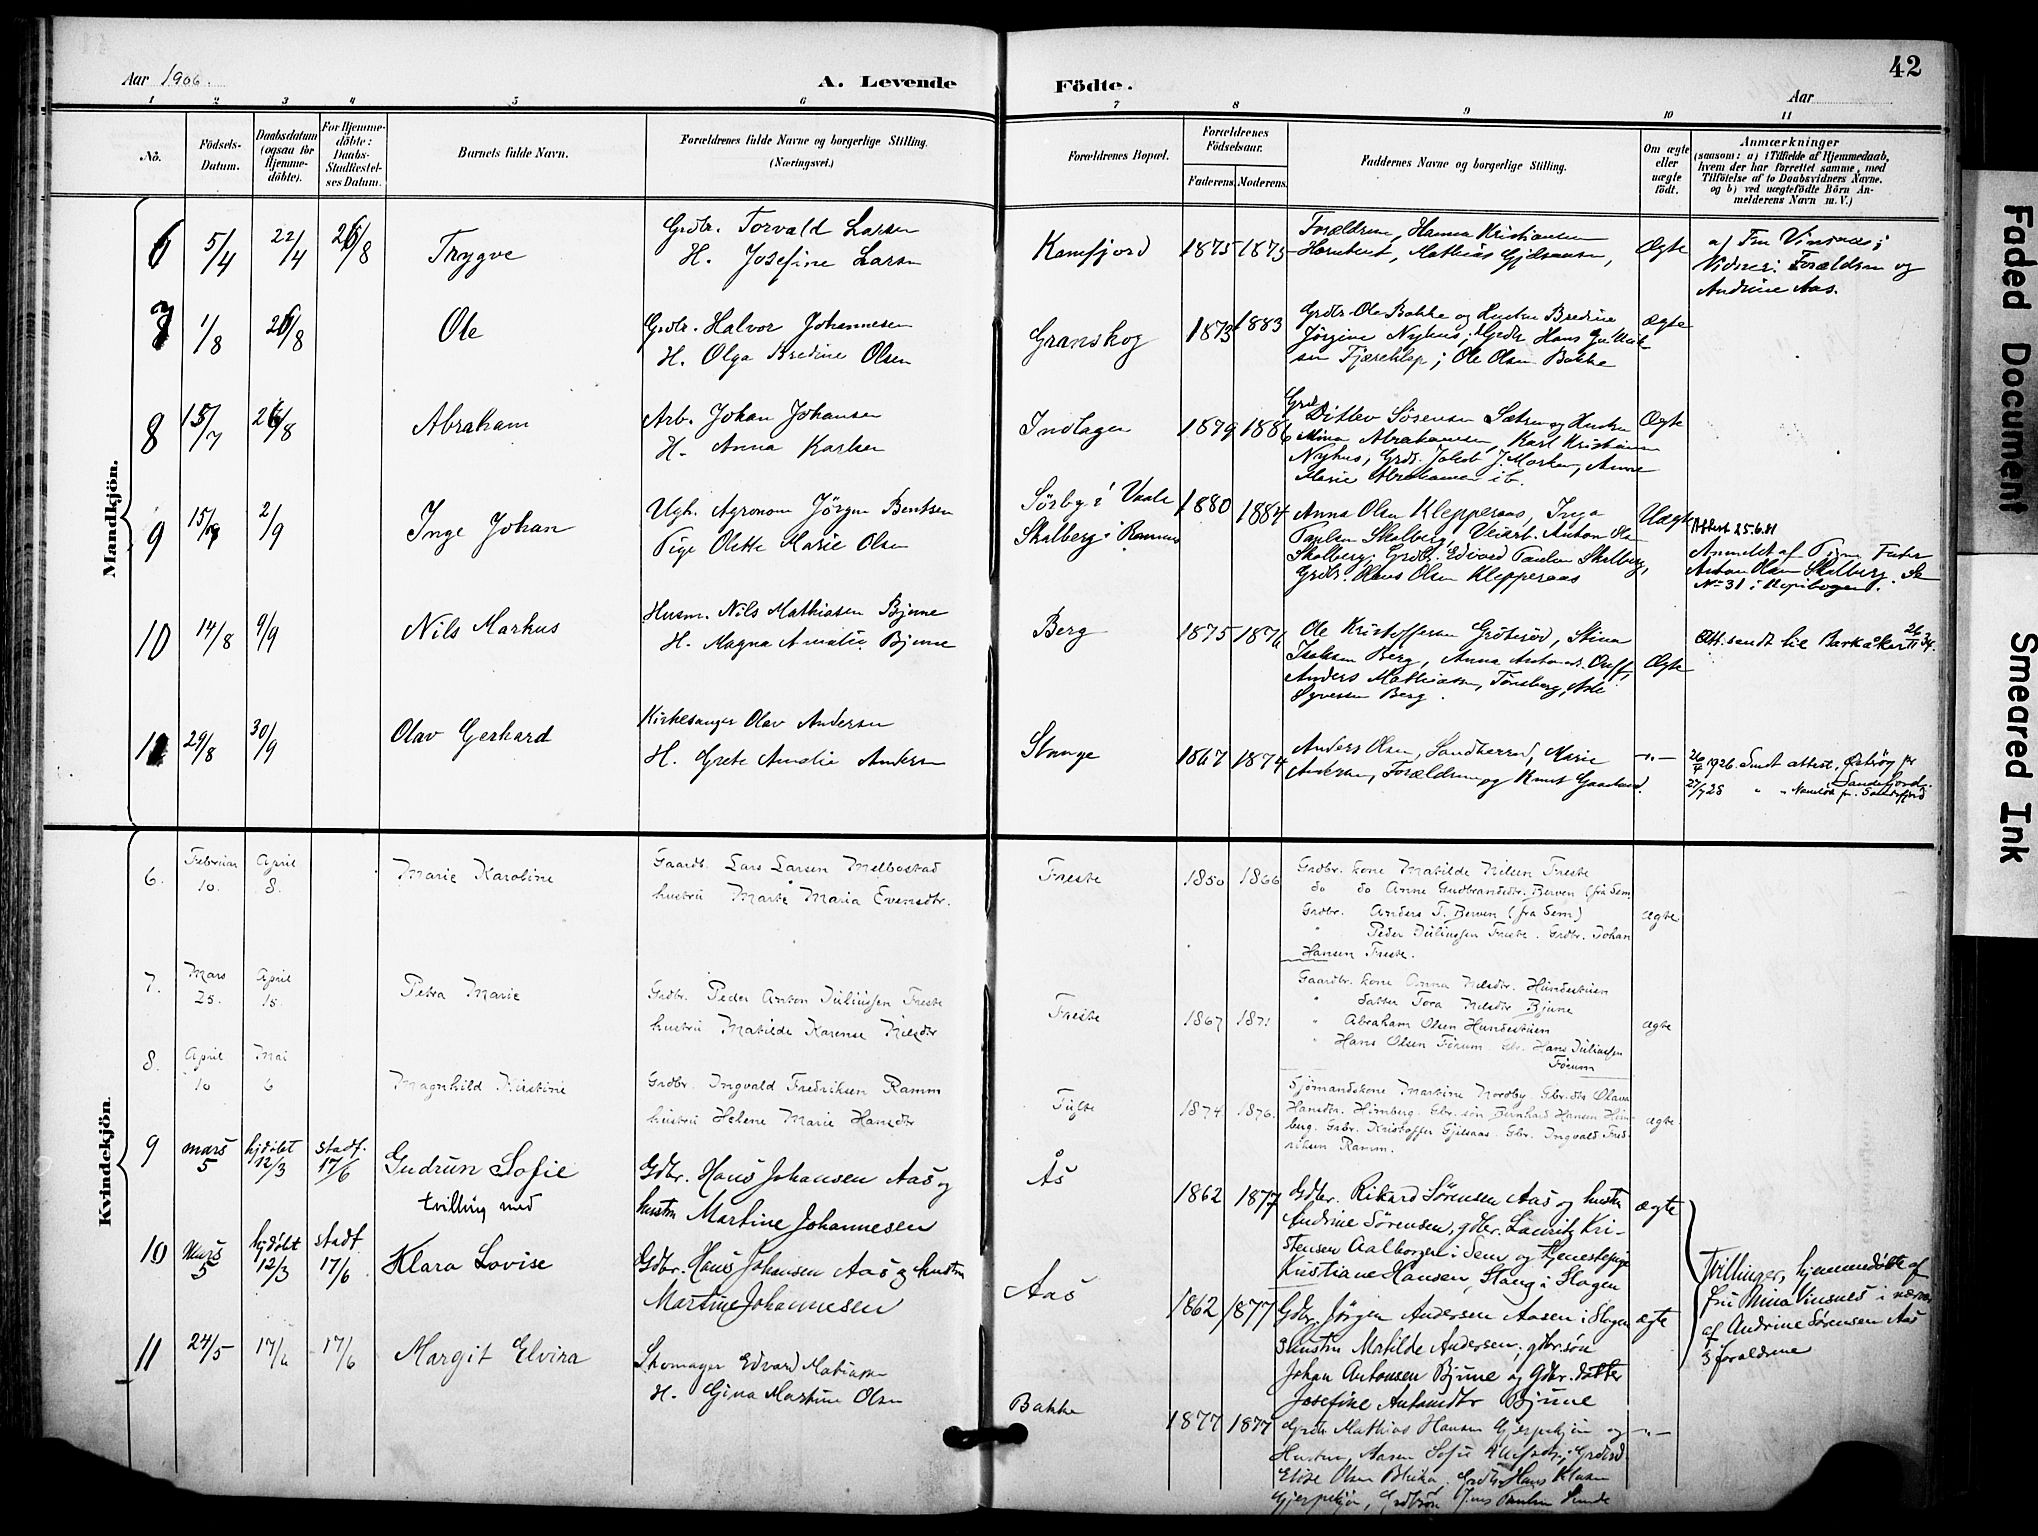 42
Aar 1906.
A. Levende Födte.
Aar
1 2 3 4 5 6 7 8 9 10 11
No.
Födsels-Datum.
Daabsdatum (ogsaa for Hjemmedöbte).
For Hjemmedöbte: Daabs-Stadfæstelses Datum.
Barnets fulde Navn.
Forældrenes fulde Navne og borgerlige Stilling.
(Næringsvei.)
Forældrenes Bopæl.
Forældrenes Födselsaar.
Faderens. Moderens.
Faddernes Navne og borgerlige Stilling.
Om ægte eller uægte födt.
Anmærkninger
(saasom: a) i Tilfælde af Hjemmedaab,
hvem der har forrettet samme, med
Tilföielse af to Daabsvidners Navne.
og b) ved uægtefödte Börn Anmelderens Navn m. V.)
Mandkjön.
6 5/4 22/4 26/8 Trygve
Grdbr. Torvald Larsen
H. Josefine Larsen
Kamfjord 1875 1875
Forældrene, Hanna Kristiansen
Mathias Gjelsaasen,
Ægte
af Fru Vinsnes;
Vidner: Forældrene og
Andrine Aas.
7 1/8 26/8 Ole
Grdbr. Halvor Johannesen
H. Olga Bredine Olsen
Granskog 1873 1883
Grdbr. Ole Bakke og Hustru Bredine
Jørgine Nyhus; Grdbr. Hans
Ole Olsen Bakke
Ægte
8 15/7 26/8 Abraham
Arb. Johan Johansen
H. Anna Karlsen
Indlagen 1879 1886
Grdbr. Ditlev Sørensen Sætre og Hustru
Mina Abrahamsen, Karl Kristian
Nyhus, Grdbr. Jakob J. Marken, Anne
Marie Abrahamsen
Ægte
9 15/7 2/9 Inge Johan
Ugk. Agronom Jörgen Bentsen
Pige Olette Marie Olsen
Sørby i Vaale
Skalberg i Ramnes
1880 1884
Anna Olsen Klepperaas, Inga
Paulsen Skalberg, Veiarb. Anton Ols.
Skalberg; Grdbr. Edvard Paulsen Skalberg,
Grdbr. Olaus Olsen Klepperaas
Uægte
Attest 25.6.81
Anmeldt af Pigens Fader
Anton Olsen Skalberg. Se
No 31 i Kopibogen.
10 14/8 9/9 Nils Markus
Husm. Nils Mathiasen Bjune
H. Magna Amalie Bjune
Berg 1875 1876
Ole Kristoffersen Gröterød, Stina
Isaksen Berg, Anna Antonsd.
Anders Mathiasen, Tønsberg,
Syversen Berg.
Ægte
Att. sendt til Barkåker 26/11 34.
11 29/8 30/9 Olav Gerhard
Kirkesanger Olav Andersen
H. Grete Amalie Andersen
Stange 1867 1874
Anders Olsen, Sandherred, Marie
Andersen, Forældrene og Knut
—"—
26/4 1926. Sendt attest, Østrøy pr
Sandefjord.
27/9 28 " " Namløs pr. Sandefjord
Kvindekjön.
6. Februar 10. April 8. Marie Karoline
Gaardb. Lars Larsen Melbostad
hustru Marte Maria Evensdtr.
Freste 1850 1866
Grdbr. kone Matilde Nilsen Freste
do do Anne Gudbrandsdtr. Berven (fra Sem)
Grdbr. Anders T. Berven (fra Sem)
" Peder Juliussen Freste. Grdbr. Johan
Hansen Freste.
ægte
7. Mars 25. April 15. Petra Marie
Grdbr. Peder Anton Juliussen Freste
hustru Matilde Karense Nilsdtr
Freste 1867 1871
Gaardbr. kone Anna Nilsdtr. Hundestuen
" datter Tora Nilsdtr Bjune
" Abraham Olsen Hundestuen
" Hans Olsen Förum. Gbr. Hans Juliussen
Förum
ægte
8. April 10 Mai 6 Magnhild Kirstine
Grdbr. Ingvald Fredriksen Ramm
hustru Helene Marie Hansdtr
Tufte 1874 1876.
Sjömandskone Martine Nordby. Gbr. dtr Olava
Hansdtr. Himberg. Gbr. sön Bernhard Hansen Himberg.
Grbr. Kristoffer Gjelsaas. Gbr. Ingvald Fredriksen
Ramm.
ægte
9 mars 5 hjdøbt 12/3 stadf. 17/6 Gudrun Sofie
tvilling med
Gdbr. Hans Johansen Aas og
hustru Martine Johannesen
Ås 1862 1877
Gdbr. Rikard Sørensen Aas og hustru
Andrine Sørensen, gdbr. Lauritz Kristensen
Aalborgen i Sem og tjenestepige
Kristiane Hansen, Stang i Slagen
ægte
10 Mars 5 hjdøbt 12/3 stadf. 17/6 Klara Lovise
Gdbr. Hans Johansen Aas og hustru
Martine Johannesen
Aas 1862 1877
Gdbr. Jørgen Andersen Aasen i Slagen
og hustru Matilde Andersen; gdbrsøn
Johan Antonsen Bjune og Gdbr. datter
Josefine Antonsdtr Bjune
ægte
Tvillinger, hjemmedøbte af
fru Mina Vinsnes i nærvær
af Andrine Sørensen Aas
og forældrene
11 24/5 17/6 17/6 Margit Elvira
Skomager Edvard Matiasen
H. Gina Martine Olsen
Bakke 1877 1877
Grdbr. Mathias Hansen Gjerpekjøn og
Hustru, Aasen Sofie
Elise Olsen Bleika, Grdbr. Hans Klausen
Gjerpekjøn, Grdbrsøn Jens Paulsen Linde
—"—
Faded Document
Smeared Ink